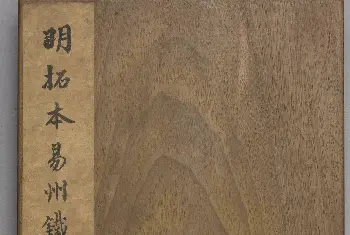 明拓本易州鐵